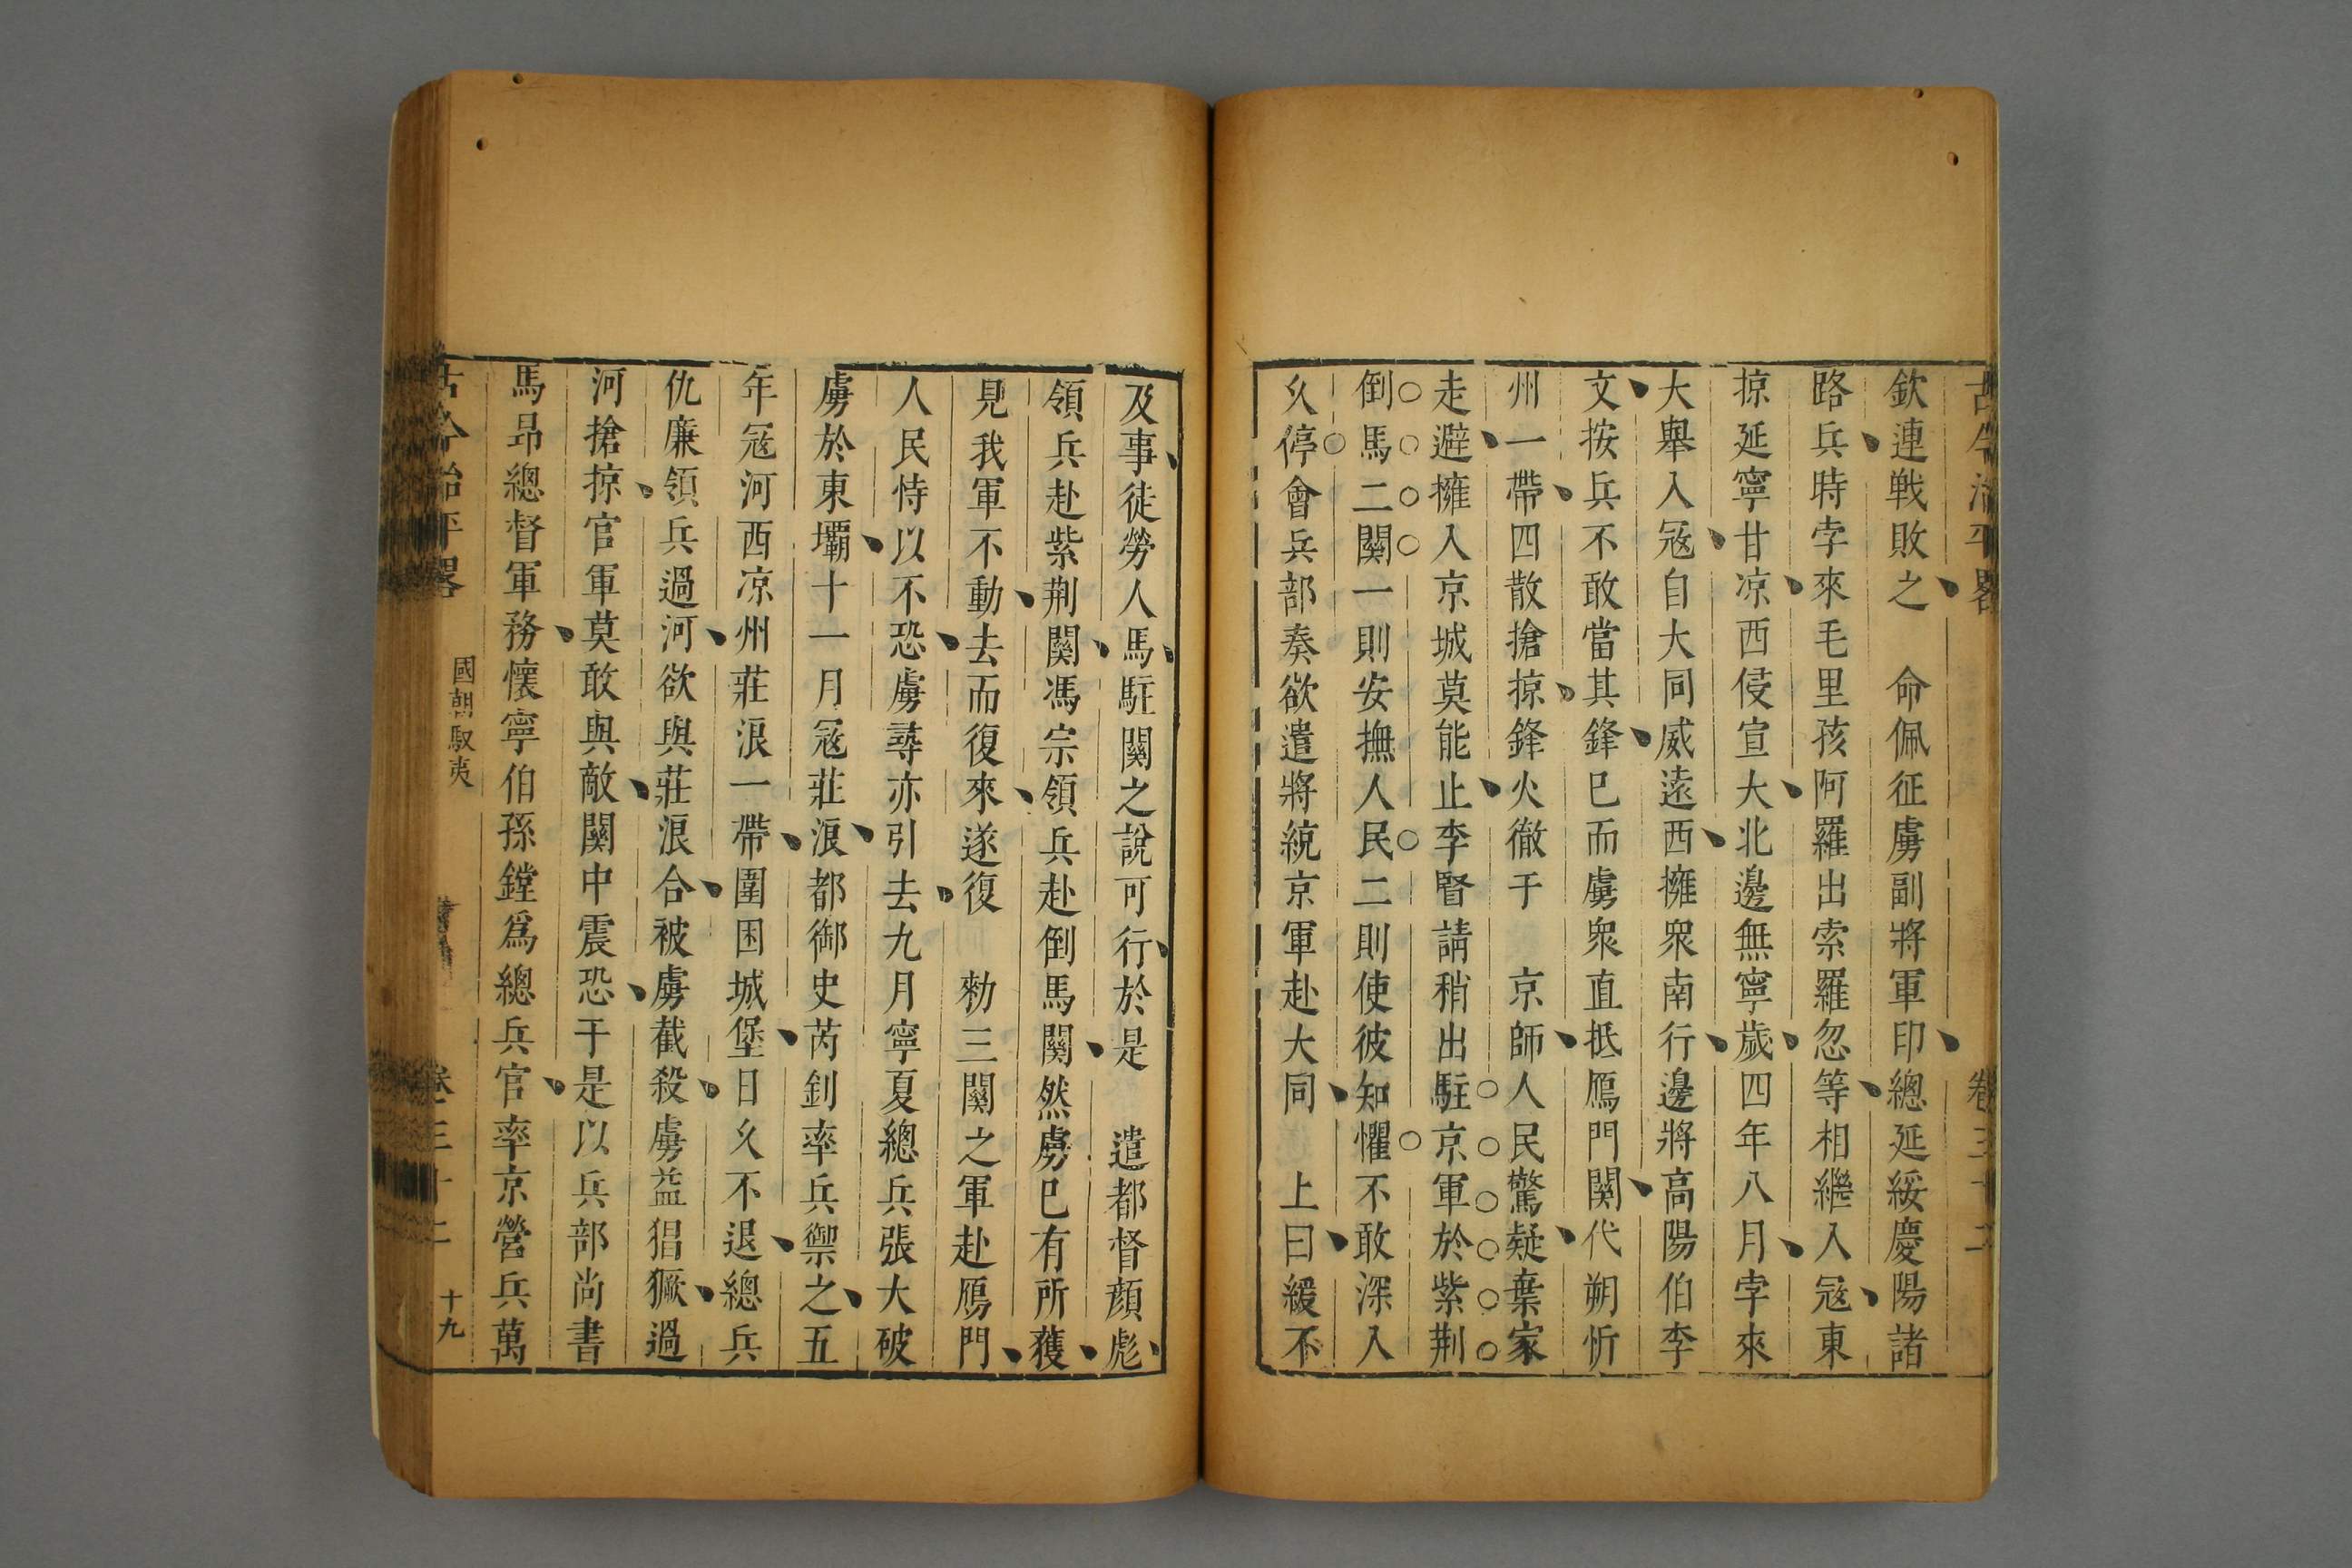 欽連戰敗之　命佩征虜副將軍印總延綏慶陽諸
路兵時孛來毛里孩阿羅出索羅忽等相繼入寇東
掠延寧甘凉西侵宣大北邊無寧歲四年八月孛來
大舉入寇自大同威遠西擁衆南行邊將高陽伯李
文按兵不敢當其鋒巳而虜衆直抵鴈門関代朔忻
州一帶四散搶掠鋒火徹于　京師人民驚疑棄家
走避擁入京城莫能止李賢請稍出駐京軍於紫荆
倒馬二関一則安撫人民二則使彼知懼不敢深入
乆停會兵部奏欲遣將統京軍赴大同　上曰緩不
及事徒勞人馬駐関之說可行於是　遣都督顔彪
領兵赴紫荆関馮宗領兵赴倒馬関然虜巳有所獲
見我軍不動去而復來遂復　勑三関之軍赴鴈門
人民恃以不恐虜尋亦引去九月寧夏總兵張大破
虜於東壩十一月寇莊浪都御史芮釗率兵禦之五
年寇河西凉州莊浪一帶圍困城堡日乆不退總兵
仇廉領兵過河欲與莊浪合被虜截殺虜益猖獗過
河搶掠官軍莫敢與敵関中震恐于是以兵部尚書
馬昻總督軍務懷寧伯孫鏜爲總兵官率京營兵萬
古今治平畧　國朝馭夷　卷三十二　十九